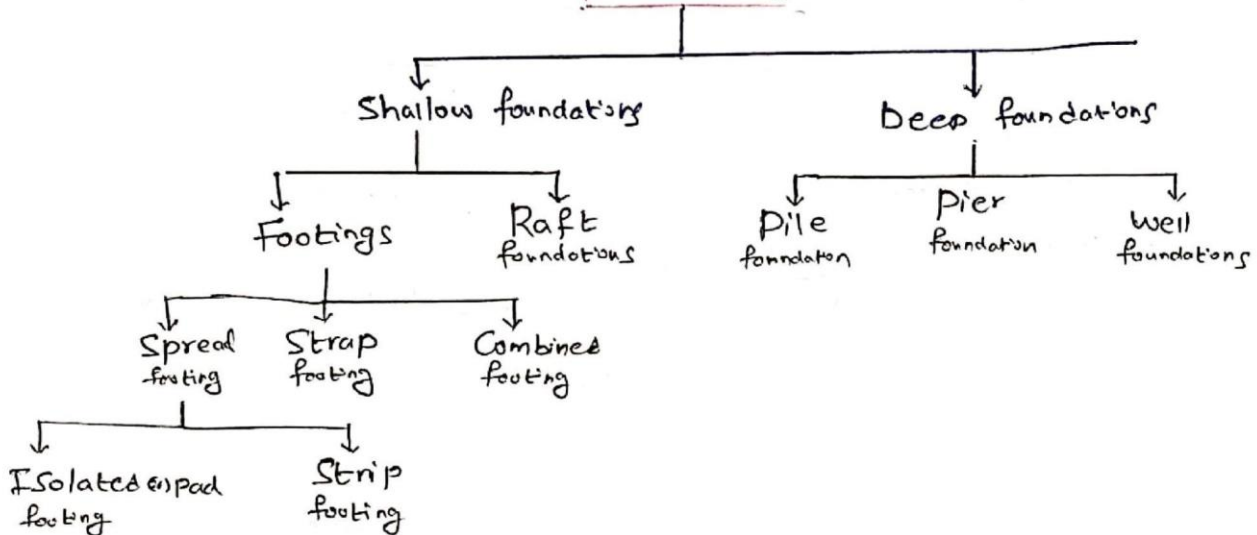 Shallow foundations
Deep foundations
Footings
Raft
foundations
Pile
foundation
Pier
foundation
Well
foundations
Spread
footing
Strap
footing
Combined
footing
Isolated (or) pad
footing
Strip
footing